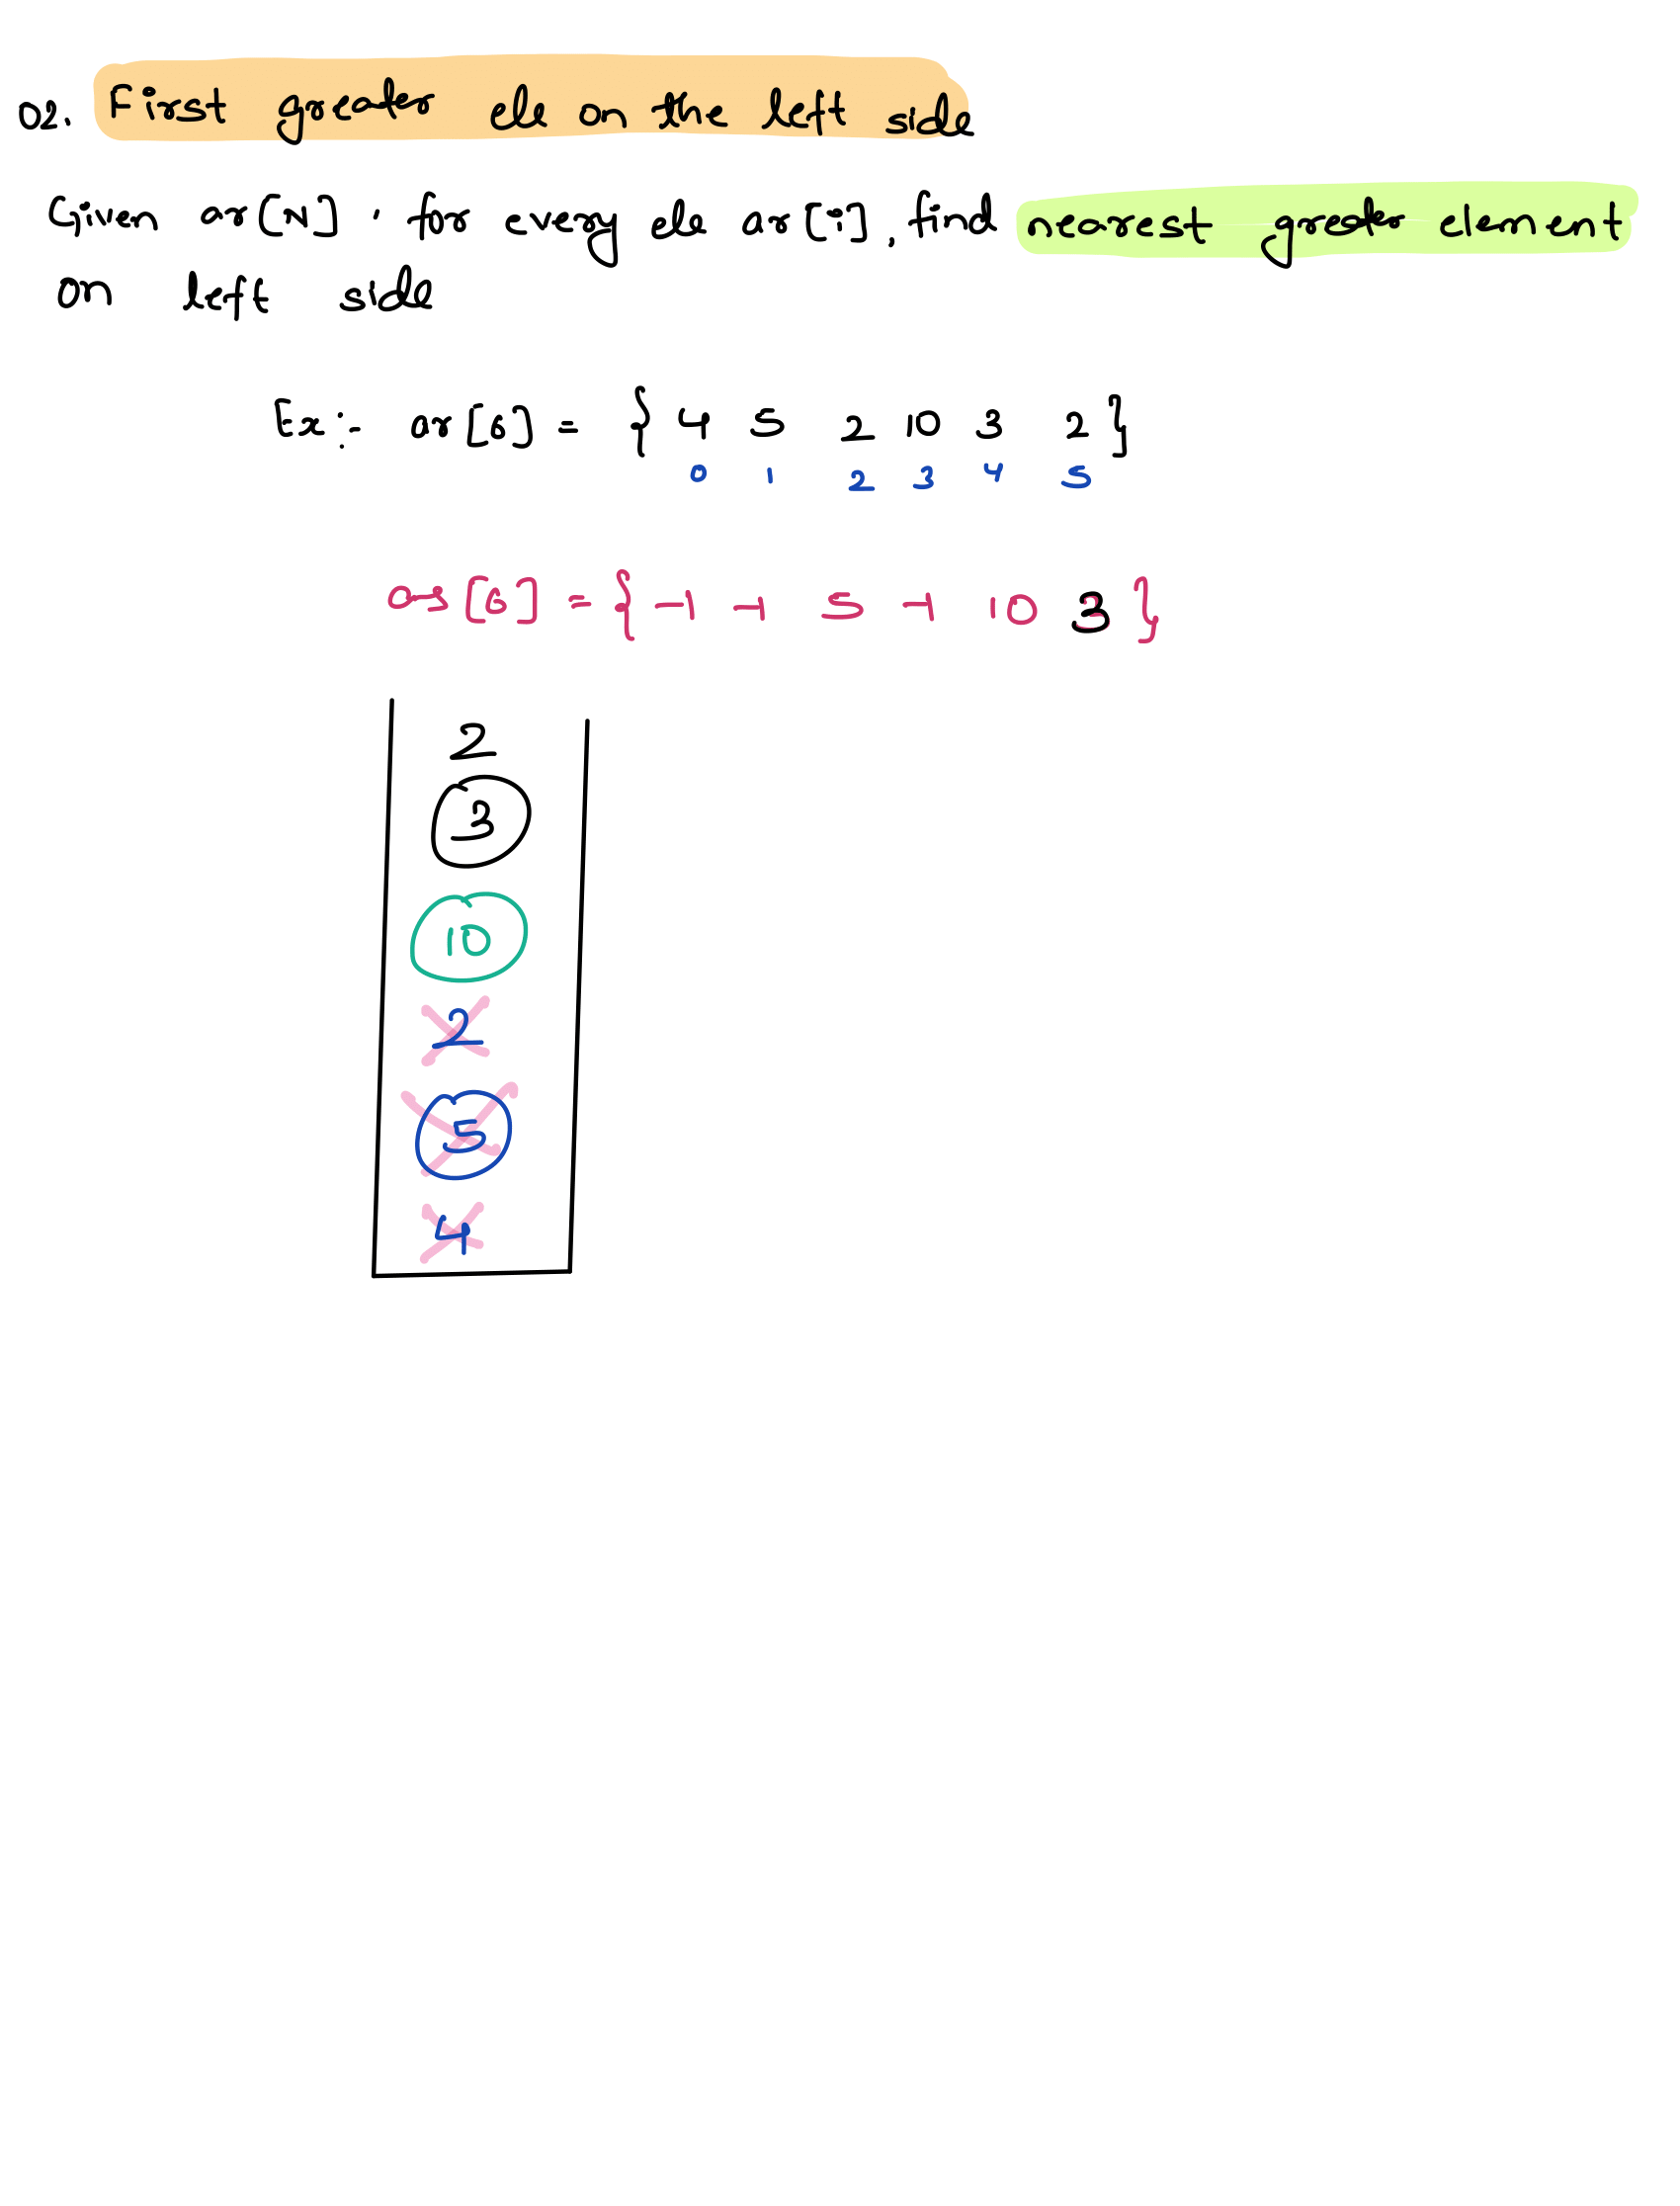 Q2. First greater ele on the left side
Given ar[N]. for every ele ar[i], find nearest greater element
on left side
Ex:- ar[6] = { 4 5 2 10 3 2 }
0 1 2 3 4 5
ans[6] = { -1 -1 5 -1 10 3 }
2
3
10
2
5
4